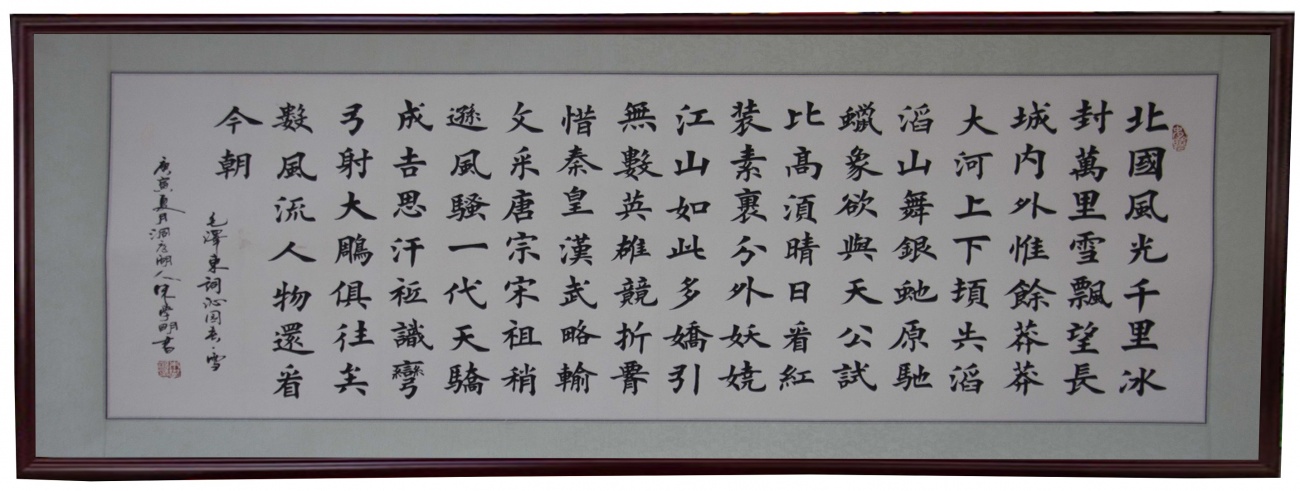 北國風光千里冰
封萬里雪飄望長
城内外惟餘莽莽
大河上下頓失滔
滔山舞銀虵原馳
蠟象欲與天公試
比高須晴日看紅
装素裹分外妖嬈
江山如此多嬌引
無數英雄競折腰
惜秦皇漢武略輸
文采唐宗宋祖稍
遜風騷一代天驕
成吉思汗祗識彎
弓射大鵰俱往矣
數風流人物還看
今朝
毛澤東詞沁園春·雪
庚寅夏月洞庭湖人學明書